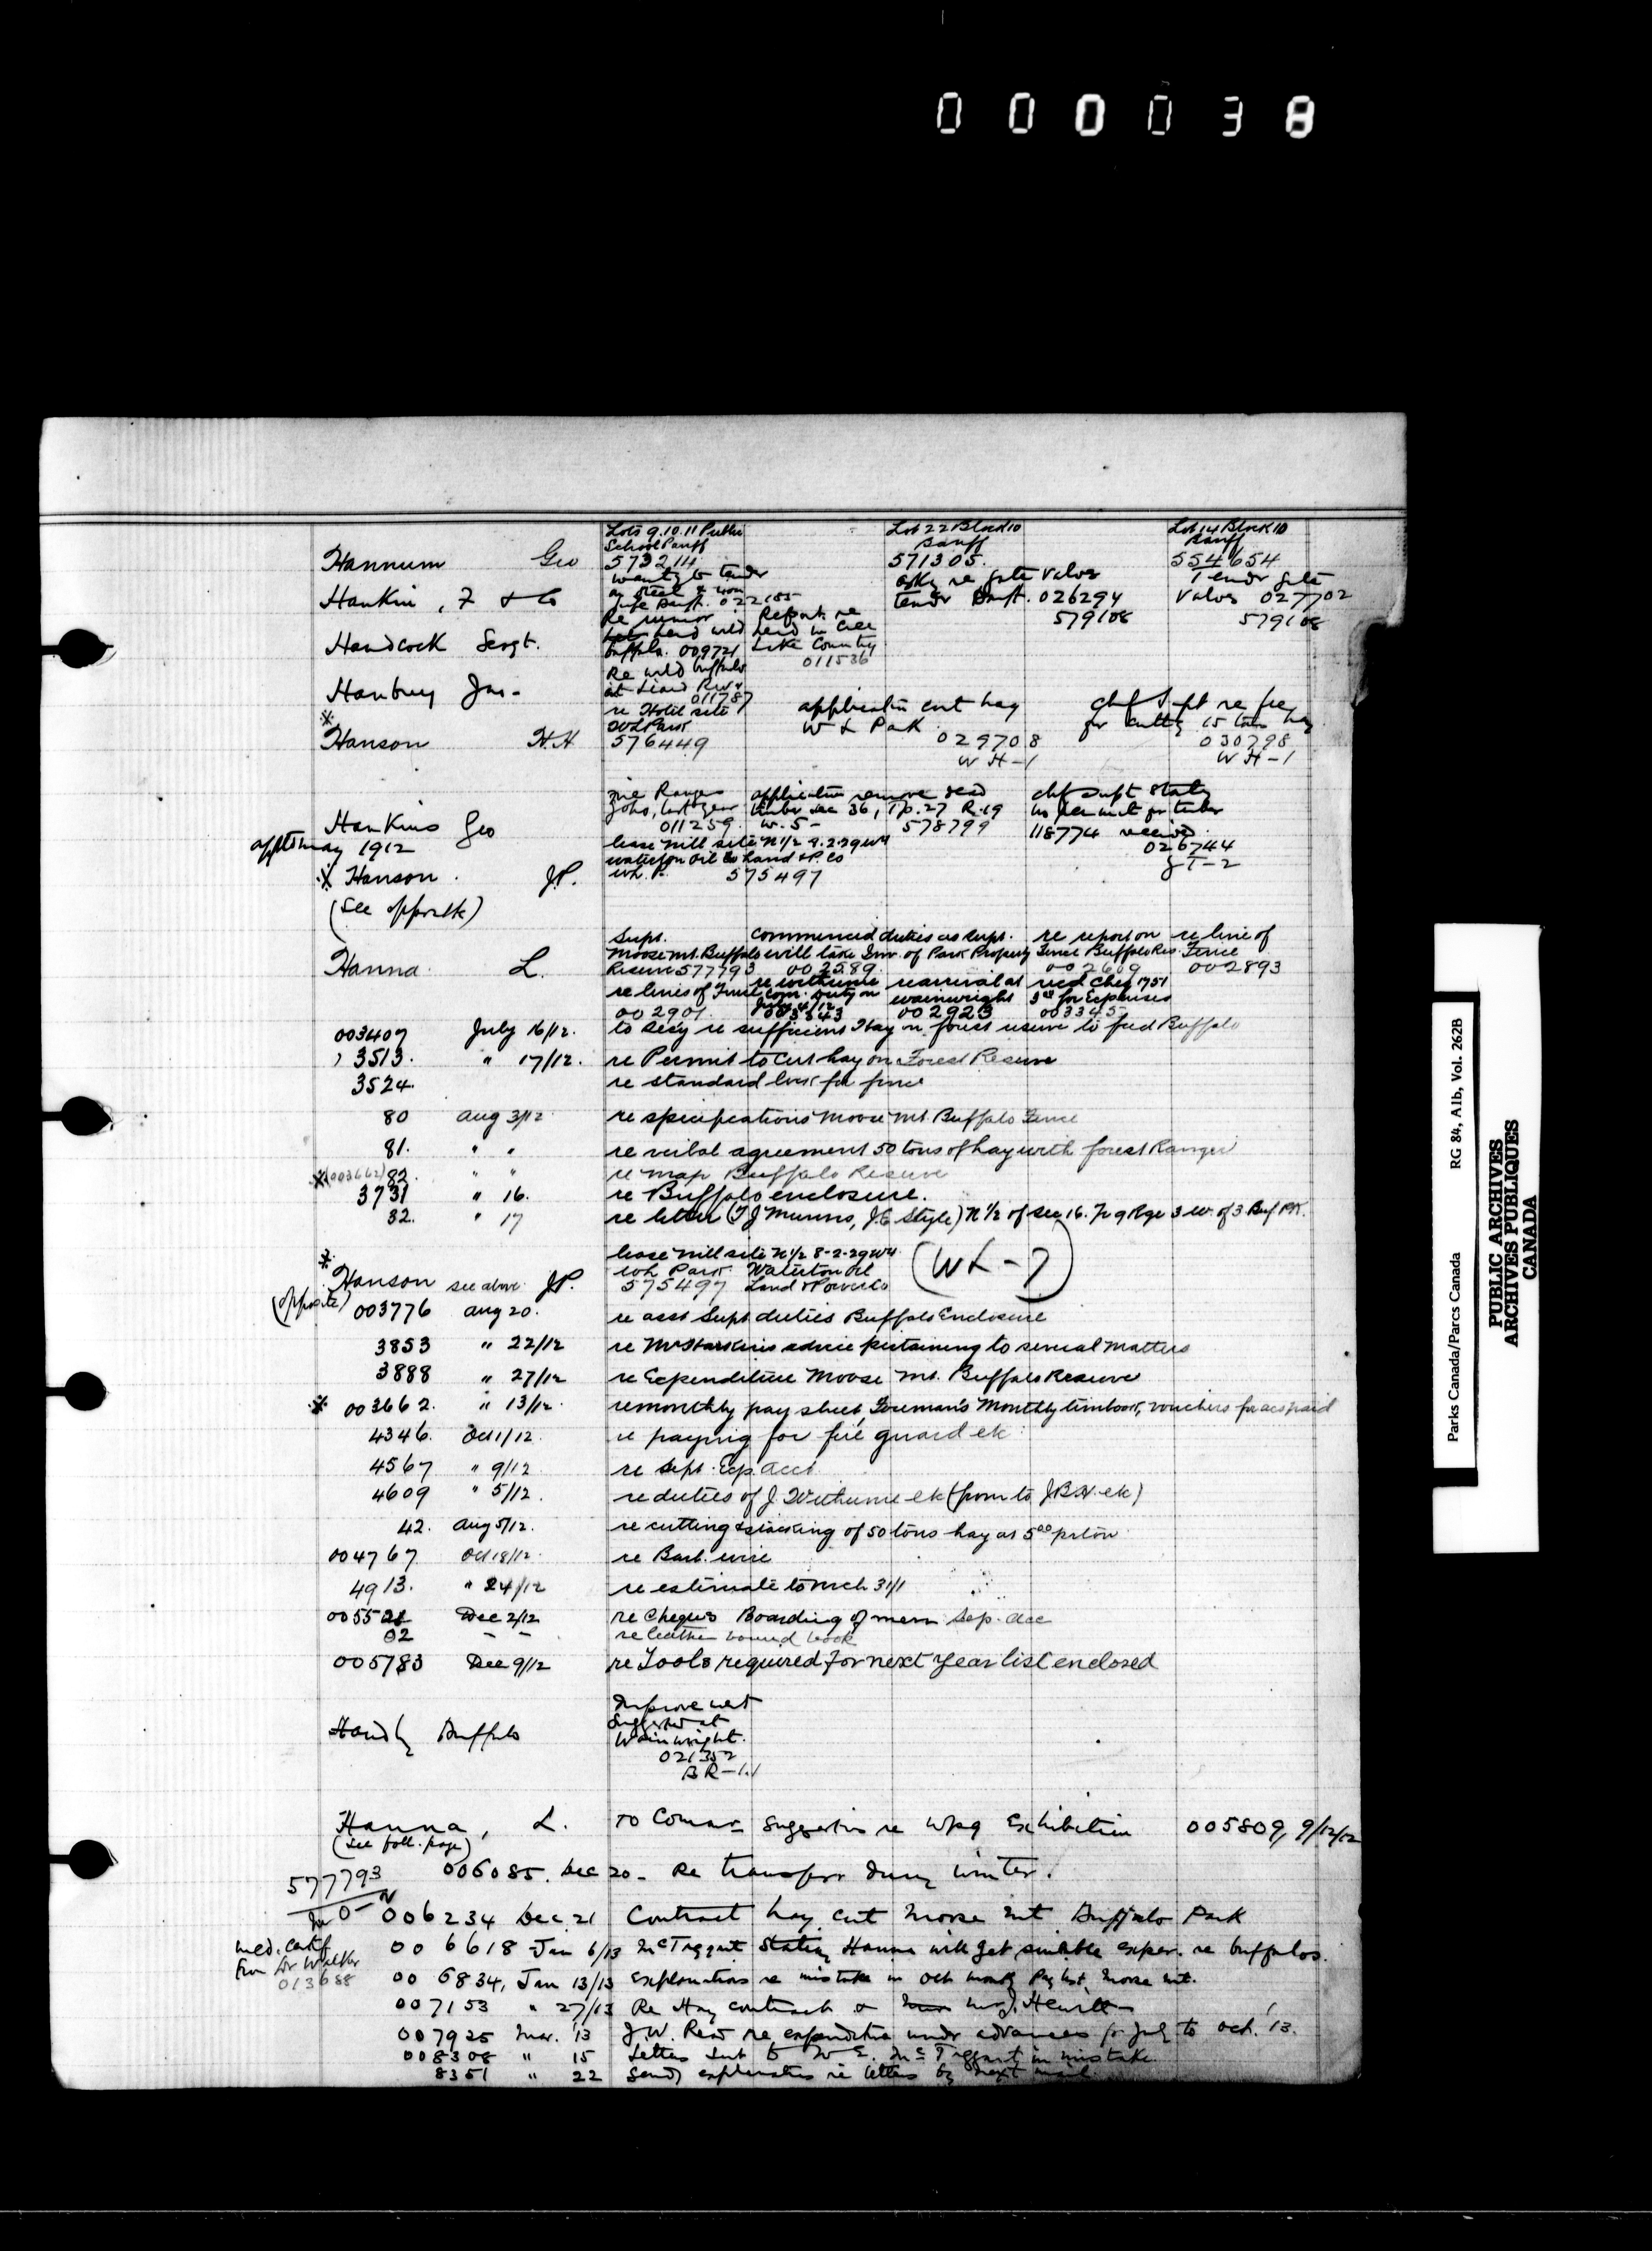 000038
Lots 9.10.11 Public
School Banff
Hannum Geo 573214
Lot 22 Block 10
Banff
571305.
Lot 14 Block 10
Banff
554654
Hankin, F & Co
wants to tender
on steel & iron
pipe Banff. 022185
asks re gate valves
tender Banff. 026294
579108
Tender gate
valves 027702
579108
Handcock Sergt.
Re rumor
herd wild
buffalo. 009721
Report re
herd in Cree
Lake Country
011536
Hanbury Jas.
Re wild buffalo
at Liard River
011787
* Hanson H.H
re Hotel site
W L Park
576449
application cut hay
W L Park
029708
W H-1
chf Supt re fee
for cutting 15 tons hay
030798
W H-1
Hankins Geo
appts may 1912
Ranger
last year
011259
application remove dead
timber Sec 36, Tp. 27 R. 19
W. 5 - 578799
chf Supt stating
no permit for timber
118774 received
026744
J T-2
* Hanson. J.P.
(See opposite)
lease Mill site N 1/2 8.2.29 W4
Waterton Oil Land & P. Co
WL. P. 575497
Hanna. L.
Supt.
Moose Mt. Buffalo
Reserve 577793
Commenced duties as Supt.
will take Inv. of Park Property
002589.
re report on
Fence Buffalo Res.
002609
re line of
Fence
002893
re lines of Fence
002901
re Withurne
com. Duty on
July 4/12
003343
re arrival at
Wainwright
002923
recd Cheq 1751
for Expenses
003345
003407 July 16/12. to Secy re sufficient Hay on forest reserve to feed Buffalo
3513. " 17/12. re Permit to Cut hay on Forest Reserve
3524. re standard for fence
80 Aug 3/12 re specifications Moose Mt. Buffalo Fence
81. " " re verbal agreement 50 tons of hay with forest Ranger
*(003662) 82. " " re map Buffalo Reserve
3731 " 16. re Buffalo enclosure.
32. " 17 re letter (T J Munns, J.C Style) N 1/2 of Sec 16. Tp 9 Rge 3 W. of 3 Buf PK.
* Hanson see above J.P.
(opposite)
lease Mill site N 1/2 8-2-29 W4
WL Park. Waterton Oil
575497 Land & Power Co
(WL-7)
003776 Aug 20. re asst Supt. duties Buffalo Enclosure
3853 " 22/12 re advice pertaining to several Matters
3888 " 27/12 re Expenditure Moose Mt. Buffalo Reserve
* 003662. " 13/12. re monthly pay sheet, Foreman's Monthly timebook, vouchers for accs paid
4346. Oct 1/12. re paying for fire guard etc
4567 " 9/12 re Sept. Exp. Acct.
4609 " 5/12. re duties of J. Withurne etc (from to J.B.H. etc)
42. Aug 5/12. re cutting & stacking of 50 tons hay at 5.00 pr ton
004767 Oct 18/12. re Barb. wire
4913. " 24/12 re estimate to Mch 31/1
005521 Dec 2/12 re Cheques Boarding of men Sep. Acc
02 - - re leather bound book
005783 Dec 9/12 re Tools required for next year list enclosed
Handling Buffalo
Improvement
suggested at
Wainwright.
021352
B R-1.
Hanna, L. To Comsr suggestion re Wpg Exhibition 005809, 9/12/12
(See foll. page)
577793
006085. Dec 20 - Re transfer during winter.
006234 Dec. 21 Contract hay cut Moose Mt Buffalo Park
006618 Jan 6/13 McTaggart stating Hanna will get suitable exper. re buffalos.
med. certif
from Dr Walker
013688
006834, Jan 13/13 Explanations re mistake in Oct month Pay list Moose Mt.
007153 " 27/13 Re Hay contract & J. Hewitt
007925 Mar. '13 J.W. Reid re expenditure under advances for July to Oct. '13.
008308 " 15 Letters sent to W E. McTaggart in mistake.
8351 " 22 Sends explanation re letters by next mail.
Parks Canada/Parcs Canada RG 84, A1b, Vol. 262B
PUBLIC ARCHIVES
ARCHIVES PUBLIQUES
CANADA